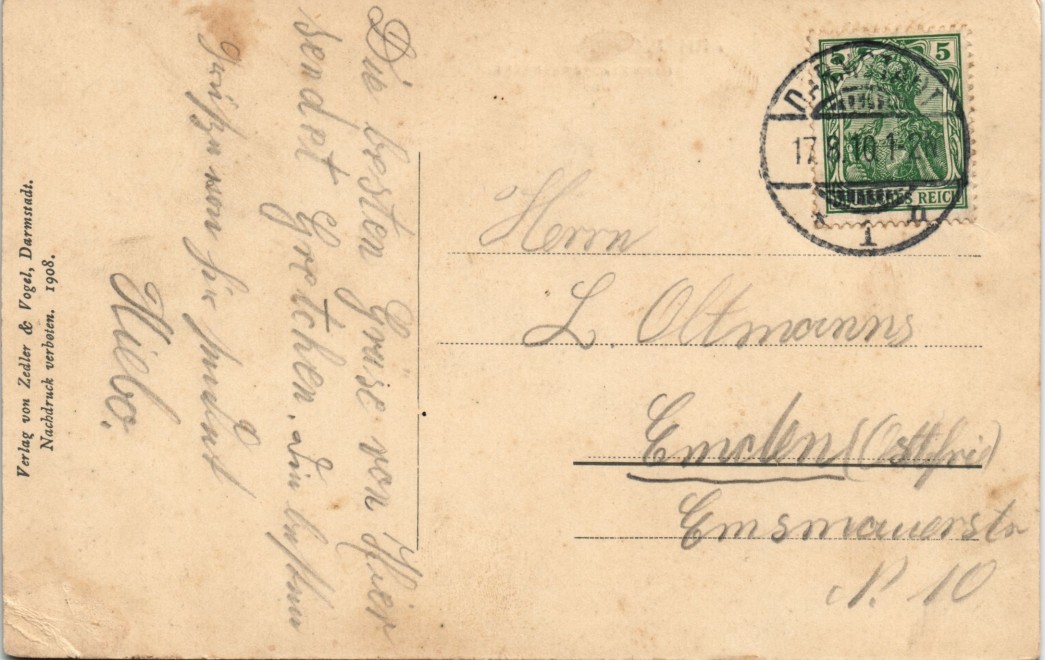 Die besten Grüße von Hier
sendet Gretchen. Die besten
Grüße von hir sendet
Hiebo.
Herrn
L. Oltmanns
Emden (Ostfrie)
Emsmauerstr
N. 10
5
DEUTSCHES REICH
DARMSTADT
17.8.10.1-2N
* 1 n
Verlag von Zedler & Vogel, Darmstadt.
Nachdruck verboten. 1908.